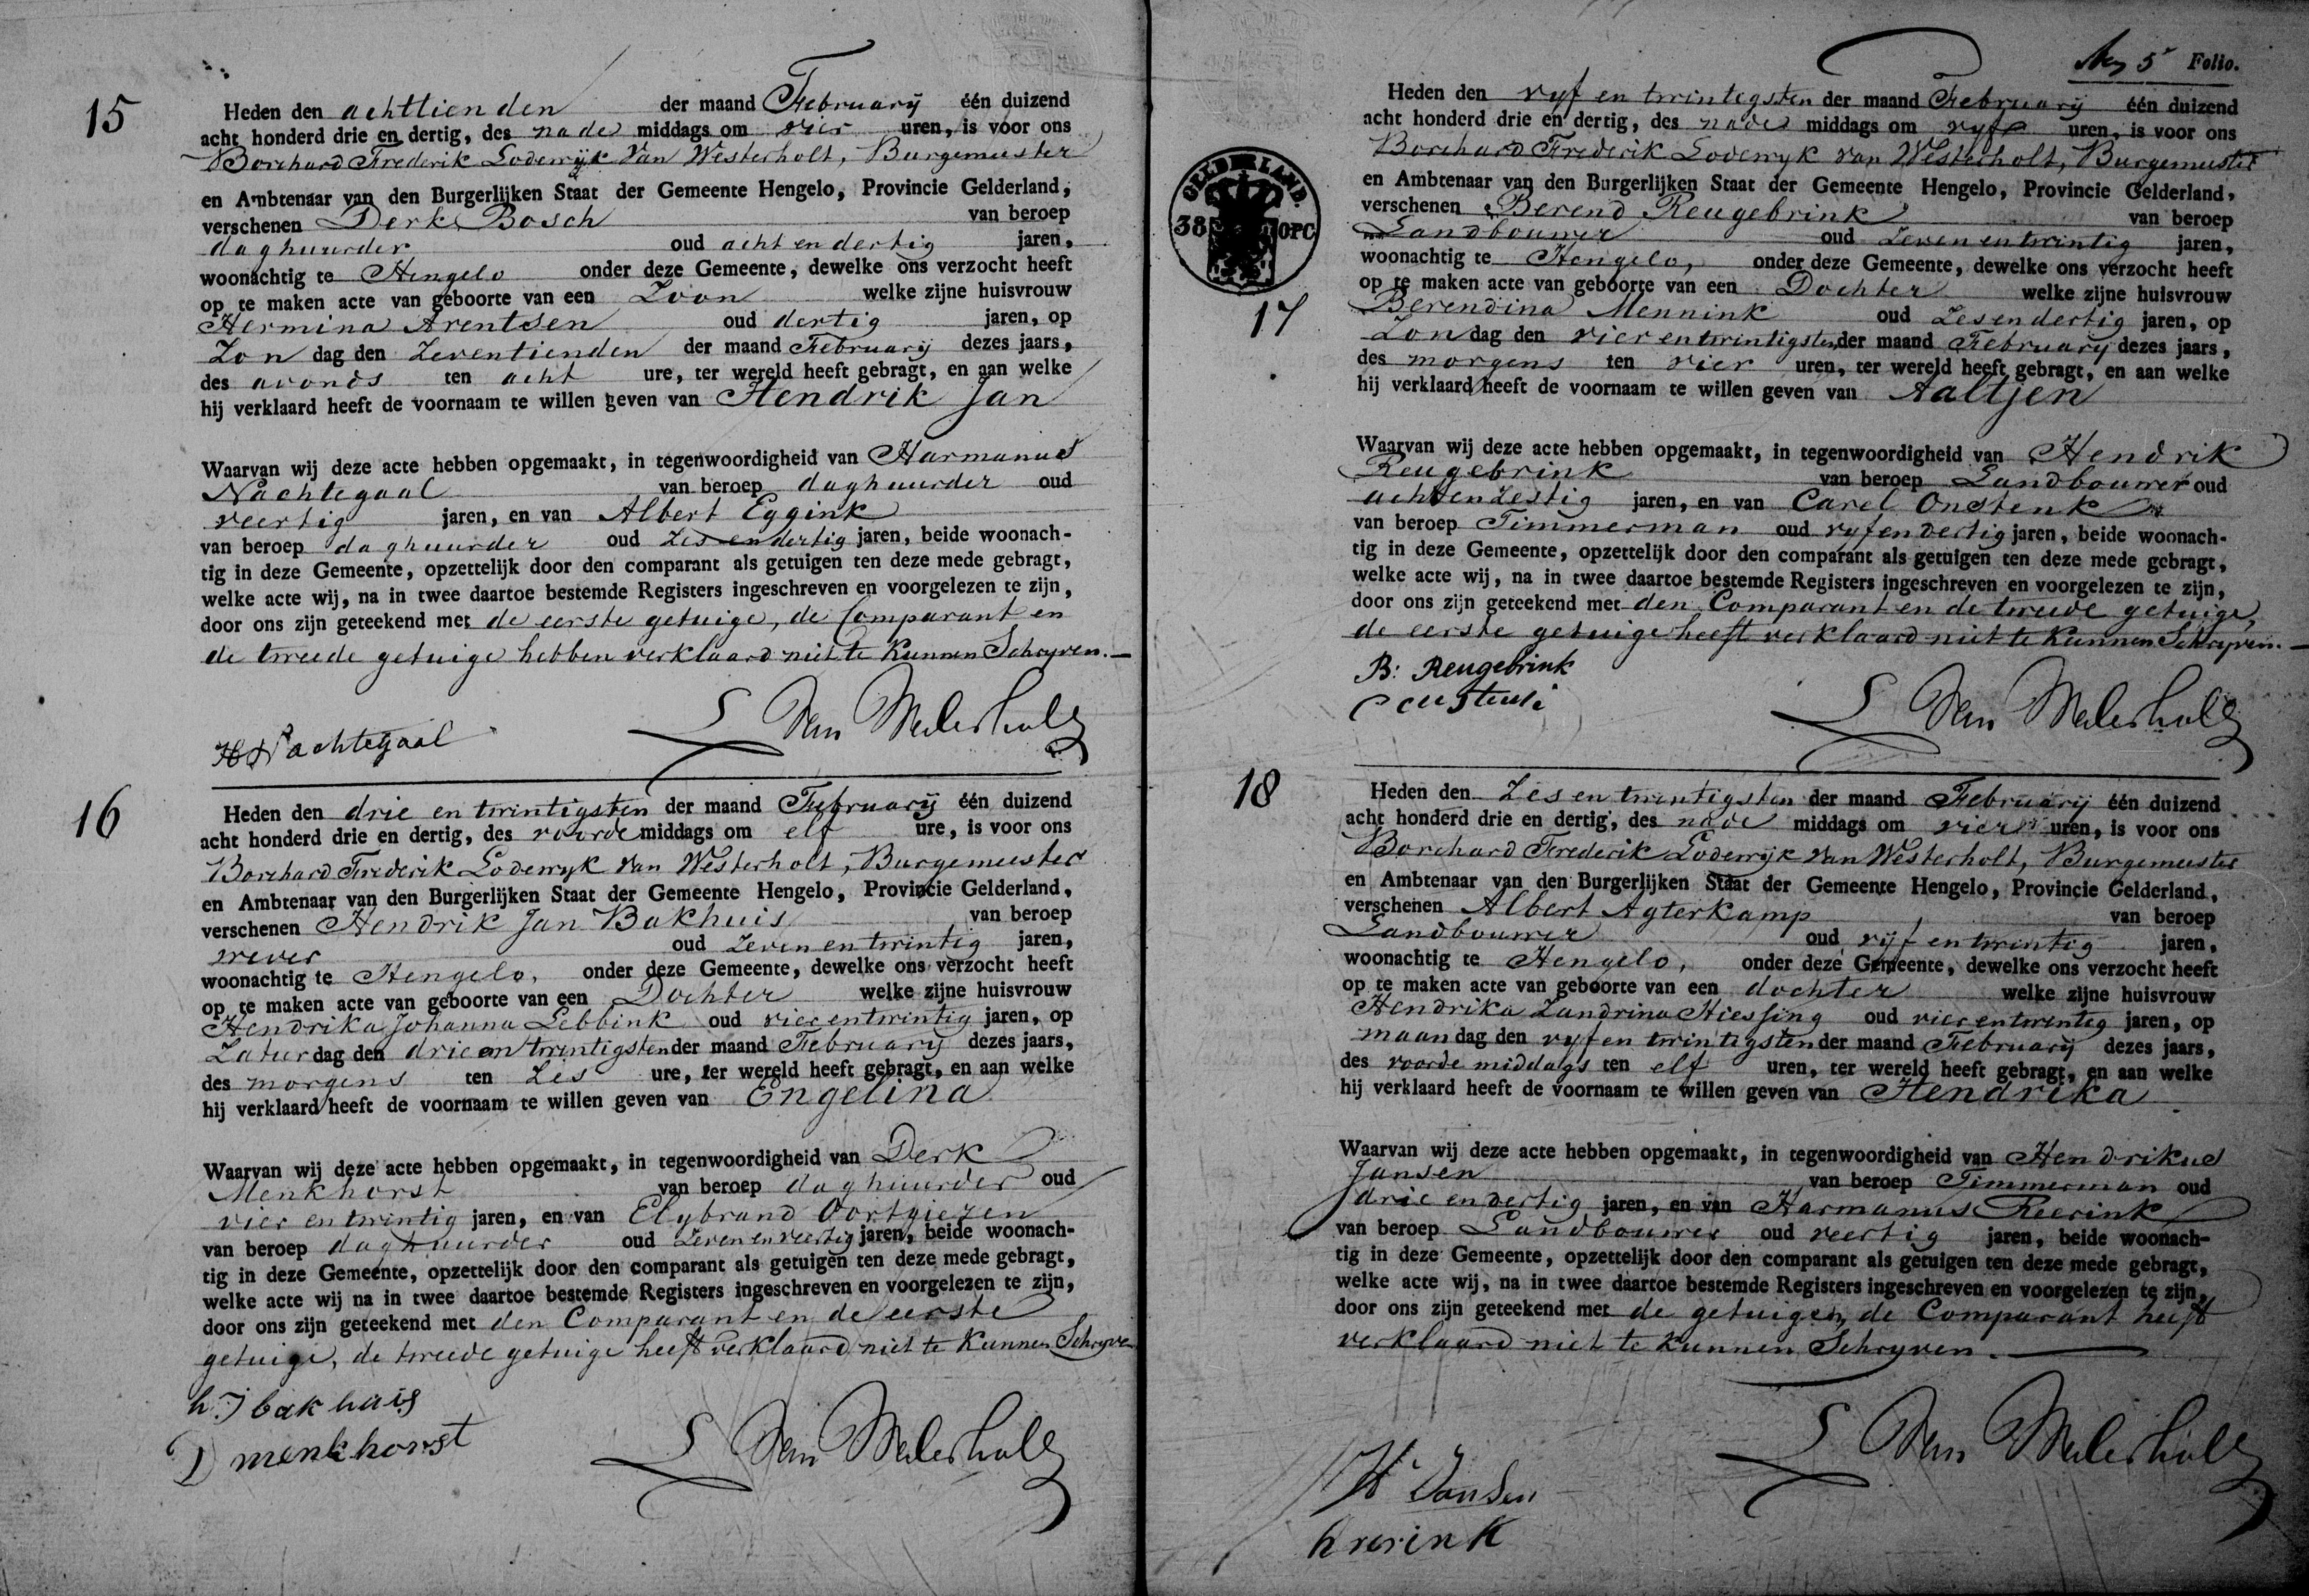 15
Heden den achttienden der maand Februarij één duizend
acht honderd drie en dertig, des nade middags om vier uren, is voor ons
Borchard Frederik Lodewijk van Westerholt, Burgemeester
en Ambtenaar van den Burgerlijken Staat der Gemeente Hengelo, Provincie Gelderland,
verschenen Derk Bosch van beroep
daghuurder oud acht en dertig jaren,
woonachtig te Hengelo onder deze Gemeente, dewelke ons verzocht heeft
op te maken acte van geboorte van een Zoon welke zijne huisvrouw
Hermina Arentsen oud dertig jaren, op
Zon dag den Zeventienden der maand Februarij dezes jaars,
des avonds ten acht ure, ter wereld heeft gebragt, en aan welke
hij verklaard heeft de voornaam te willen geven van Hendrik Jan
Waarvan wij deze acte hebben opgemaakt, in tegenwoordigheid van Harmanus
Nachtegaal van beroep daghuurder oud
veertig jaren, en van Albert Eggink
van beroep daghuurder oud Zes en dertig jaren, beide woonach-
tig in deze Gemeente, opzettelijk door den comparant als getuigen ten deze mede gebragt,
welke acte wij, na in twee daartoe bestemde Registers ingeschreven en voorgelezen te zijn,
door ons zijn geteekend met de eerste getuige, de Comparant en
de tweede getuige hebben verklaard niet te Kunnen Schryven.—
H Nachtegaal
L Van Westerholt
16
Heden den drie en twintigsten der maand Februarij één duizend
acht honderd drie en dertig, des voorde middags om elf ure, is voor ons
Borchard Frederik Lodewyk van Westerholt, Burgemeester
en Ambtenaar van den Burgerlijken Staat der Gemeente Hengelo, Provincie Gelderland,
verschenen Hendrik Jan Bakhuis van beroep
wever oud Zeven en twintig jaren,
woonachtig te Hengelo, onder deze Gemeente, dewelke ons verzocht heeft
op te maken acte van geboorte van een Dochter welke zijne huisvrouw
Hendrika Johanna Lebbink oud vier en twintig jaren, op
Zatur dag den drie en twintigsten der maand Februarij dezes jaars,
des morgens ten Zes ure, ter wereld heeft gebragt, en aan welke
hij verklaard heeft de voornaam te willen geven van Engelina
Waarvan wij deze acte hebben opgemaakt, in tegenwoordigheid van Derk
Menkhorst van beroep daghuurder oud
vier en twintig jaren, en van Elybrand Oortgiezen
van beroep daghuurder oud Zeven en veertig jaren, beide woonach-
tig in deze Gemeente, opzettelijk door den comparant als getuigen ten deze mede gebragt,
welke acte wij na in twee daartoe bestemde Registers ingeschreven en voorgelezen te zijn,
door ons zijn geteekend met den Comparant en de eerste
getuige, de tweede getuige heeft verklaard niet te Kunnen Schryven
h J bakhuis
D menkhorst
L Van Westerholt
5 Folio.
GELDERLAND.
38 OPC
17
Heden den vyf en twintigsten der maand Februarij één duizend
acht honderd drie en dertig, des nade middags om vyf uren, is voor ons
Borchard Frederik Lodewyk van Westerholt, Burgemeester
en Ambtenaar van den Burgerlijken Staat der Gemeente Hengelo, Provincie Gelderland,
verschenen Berend Reugebrink van beroep
Landbouwer oud Zeven en twintig jaren,
woonachtig te Hengelo, onder deze Gemeente, dewelke ons verzocht heeft
op te maken acte van geboorte van een Dochter welke zijne huisvrouw
Berendina Mennink oud Zes en dertig jaren, op
Zon dag den vier en twintigsten der maand Februarij dezes jaars,
des morgens ten vier uren, ter wereld heeft gebragt, en aan welke
hij verklaard heeft de voornaam te willen geven van Aaltjen
Waarvan wij deze acte hebben opgemaakt, in tegenwoordigheid van Hendrik
Reugebrink van beroep Landbouwer oud
acht en Zestig jaren, en van Carel Onstenk
van beroep Timmerman oud vyf en dertig jaren, beide woonach-
tig in deze Gemeente, opzettelijk door den comparant als getuigen ten deze mede gebragt,
welke acte wij, na in twee daartoe bestemde Registers ingeschreven en voorgelezen te zijn,
door ons zijn geteekend met den Comparant en de tweede getuige,
de eerste getuige heeft verklaard niet te Kunnen Schryven.—
B: Reugebrink
L Van Westerholt
18
Heden den Zes en twintigsten der maand Februarij één duizend
acht honderd drie en dertig, des nade middags om vier uren, is voor ons
Borchard Frederik Lodewijk van Westerholt, Burgemeester
en Ambtenaar van den Burgerlijken Staat der Gemeente Hengelo, Provincie Gelderland,
verschenen Albert Agterkamp van beroep
Landbouwer oud vijf en twintig jaren,
woonachtig te Hengelo, onder deze Gemeente, dewelke ons verzocht heeft
op te maken acte van geboorte van een dochter welke zijne huisvrouw
Hendrika Zandrina Hiessing oud vier en twintig jaren, op
maan dag den vyf en twintigsten der maand Februarij dezes jaars,
des voorde middags ten elf uren, ter wereld heeft gebragt, en aan welke
hij verklaard heeft de voornaam te willen geven van Hendrika
Waarvan wij deze acte hebben opgemaakt, in tegenwoordigheid van Hendrikus
Jansen van beroep Timmerman oud
drie en dertig jaren, en van Harmanus Reerink
van beroep Landbouwer oud veertig jaren, beide woonach-
tig in deze Gemeente, opzettelijk door den comparant als getuigen ten deze mede gebragt,
welke acte wij, na in twee daartoe bestemde Registers ingeschreven en voorgelezen te zijn,
door ons zijn geteekend met de getuigen, de Comparant heeft
verklaard niet te Kunnen Schryven.—
H Jansen
h rerink
L Van Westerholt